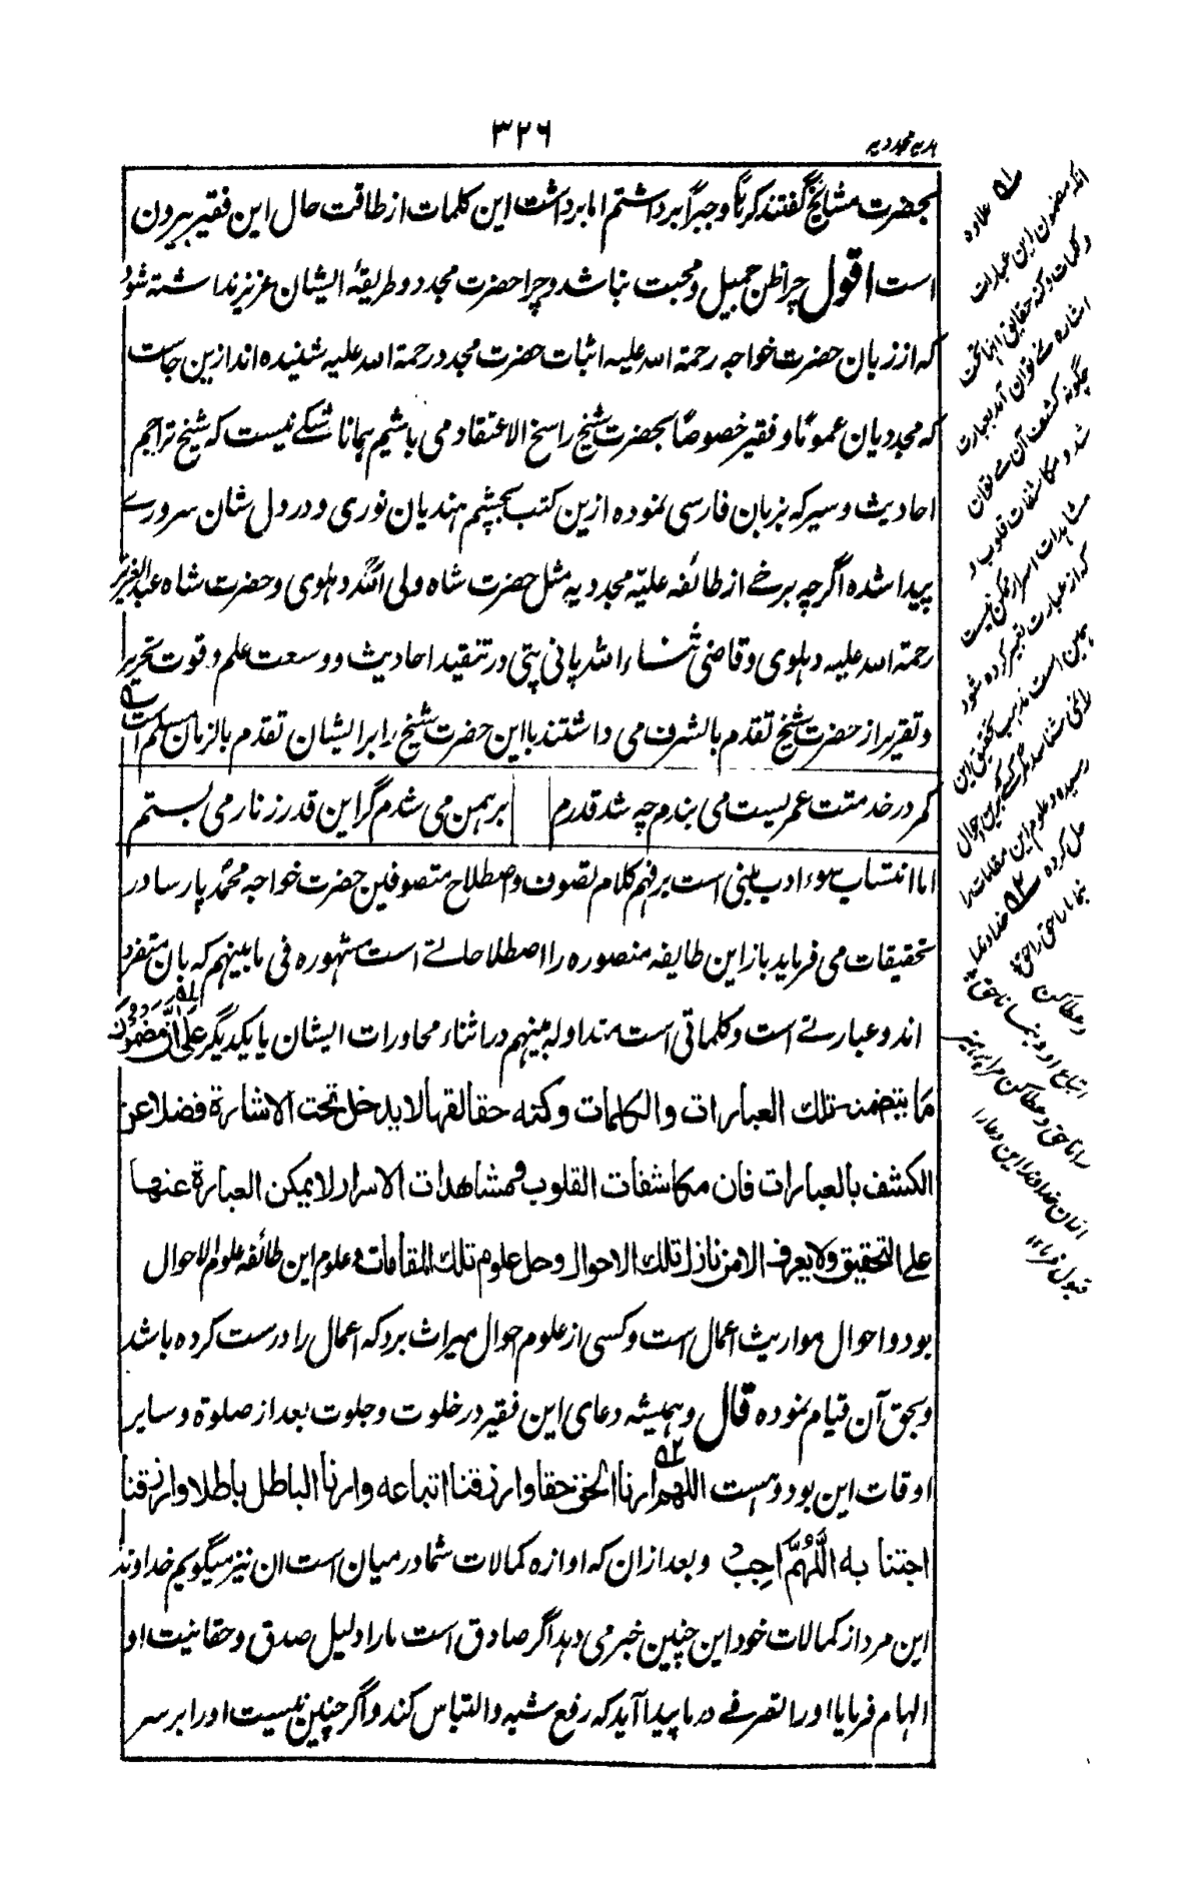 ۳۲۶
ہدیہ مجددیہ
بحضرت مشایخ گفتند کرہاً وجبراً برداشتم اما برداشت این کلمات از طاقت حال این فقیر بیرون
است اقول چرا ظن جمیل و محبت نباشد و چرا حضرت مجدد و طریقۂ ایشان عزیز نداشته شود
که از زبان حضرت خواجه رحمة الله علیه اثبات حضرت مجدد رحمة الله علیه شنیده اند ازین جاست
که مجددیان عموماً و فقیر خصوصاً بحضرت شیخ راسخ الاعتقاد می باشیم همانا شکے نیست که شیخ تراجم
احادیث و سیر که بزبان فارسی نموده ازین کتب بچشم هندیان نوری و در دل شان سرورے
پیدا شده اگرچه برخے از طائفه علیّه مجددیه مثل حضرت شاه ولی الله دہلوی و حضرت شاه عبدالعزیز
رحمة الله علیه دہلوی و قاضی ثناء الله پانی پتی در تنقید احادیث و وسعت علم و قوت تحریر
و تقریر از حضرت شیخ تقدم بالشرف می داشتند با این حضرت شیخ را بر ایشان تقدم بالزمان مسلم است
کمر در خدمتت عمریست می بندم چه شد قدرم
برهمن می شدم گر این قدر زنار می بستم
اما انتساب سوء ادب مبنی است بر فهم کلام تصوف و اصطلاح متصوفین حضرت خواجه محمد پارسا در
تحقیقات می فرماید باز این طایفه منصوره را اصطلاحاتے است مشهوره فی ما بینهم که بان متفرد
اند و عبارتے است و کلماتی است متداوله بینهم در اثناء محاورات ایشان با یکدیگر علی ان مضمون
ما یتضمن تلك العبارات والکلمات وکنه حقائقها لا یدخل تحت الاشارة فضلا عن
الکشف بالعبارات فان مکاشفات القلوب ومشاهدات الاسرار لا یمکن العبارة عنها
علی التحقیق ولا یعرف الا من نازل تلك الاحوال وحل علوم تلك المقامات و علوم این طائفه علوم الاحوال
بود و احوال مواریث اعمال است و کسی از علوم احوال میراث برد که اعمال را درست کرده باشد
و بحق آن قیام نموده قال و همیشه دعای این فقیر در خلوت و جلوت بعد از صلوة و سایر
اوقات این بود و هست اللهم ارنا الحق حقا وارزقنا اتباعه وارنا الباطل باطلا وارزقنا
اجتنا به اللّٰهُمَّ اَجِبْ و بعد ازان که اوازه کمالات شما در میان است ان نیز میگویم خداوندا
این مرد از کمالات خود این چنین خبر می دہد اگر صادق است مارا دلیل صدق و حقانیت او
الهام فرمایا او را تصرفے در ما پیدا آید که رفع شبه و التباس کند و اگر چنین نیست او را بر سر
علاوه
انکه مضمون این عبارات
و کلمات و کنه حقایق انها تحت
اشاره نمے توان آمد بعبارت
چگونه کشف آن مے توان
شد و مکاشفات قلوب و
مشاہدات اسرار ممکن نیست
که از عبارت تعبیر کرده شود
همین است مذهب تحقیق این
رانمی شناسد مگر کسے که برین احوال
رسیده و علوم این مقامات را
حل کرده ۵۲ خداوندا
بنما مارا حق را حق
و عطا کن
اتباع او و بنما ناحق
را ناحق و عطا کن مرا پرہیز
ازان خداوندا این دعا را
قبول فرما ۱۲